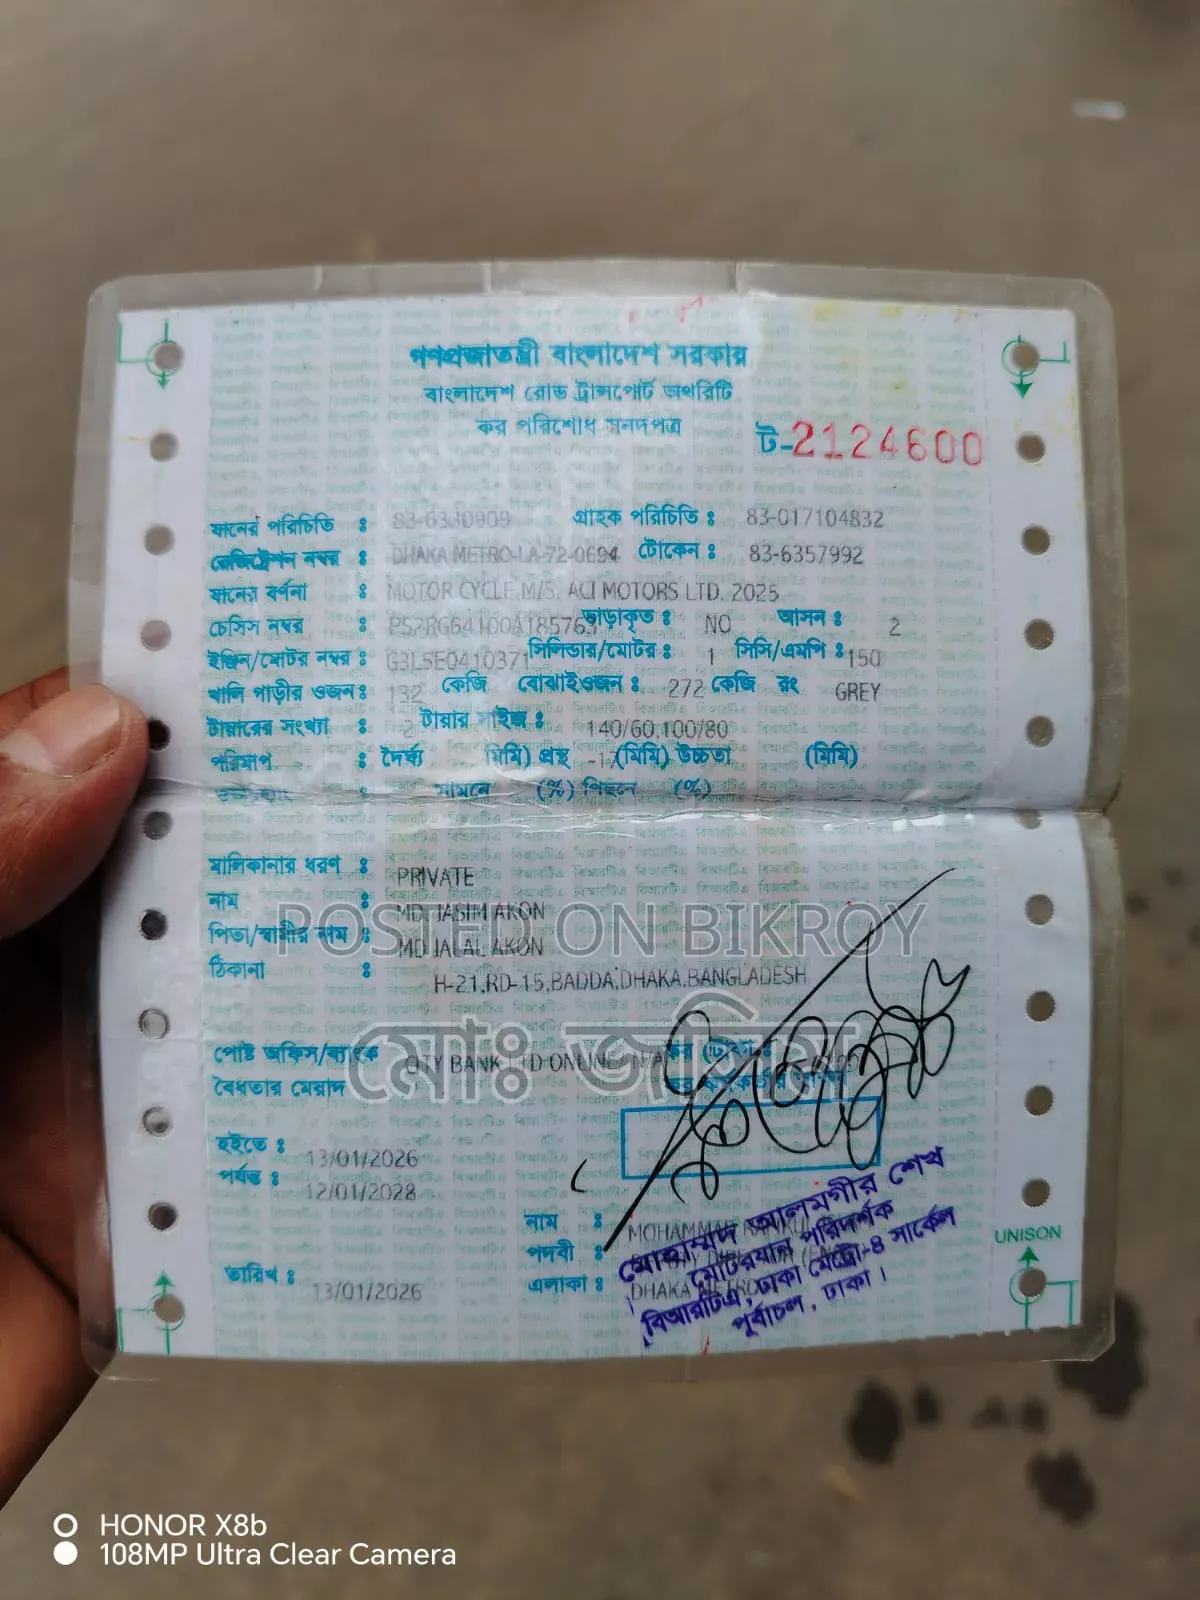 গণপ্রজাতন্ত্রী বাংলাদেশ সরকার
বাংলাদেশ রোড ট্রান্সপোর্ট অথরিটি
কর পরিশোধ সনদপত্র
ট-2124600
যানের পরিচিতি : 83-6330909 গ্রাহক পরিচিতি : 83-017104832
রেজিস্ট্রেশন নম্বর : DHAKA METRO-LA-72-0694 টোকেন : 83-6357992
যানের বর্ণনা : MOTOR CYCLE M/S. ACI MOTORS LTD. 2025
চেসিস নম্বর : ভাড়াকৃত : NO আসন : 2
ইঞ্জিন/মোটর নম্বর : G3L5E0410371 সিলিন্ডার/মোটর : 1 সিসি/এমপি : 150
খালি গাড়ীর ওজন : 132 কেজি বোঝাইওজন : 272 কেজি রং GREY
টায়ারের সংখ্যা : 2 টায়ার সাইজ : 140/60,100/80
পরিমাপ : দৈর্ঘ্য (মিমি) প্রস্থ (মিমি) উচ্চতা (মিমি)
: সামনে (%) পিছনে (%)
মালিকানার ধরণ : PRIVATE
নাম : MD JASIM AKON
পিতা/স্বামীর নাম : MD JALAL AKON
POSTED ON BIKROY
ঠিকানা : H-21,RD-15,BADDA,DHAKA,BANGLADESH
মোঃ জসিম
পোষ্ট অফিস/ব্যাংক CITY BANK LTD ONLINE কর (টাকা) :
বৈধতার মেয়াদ
হইতে : 13/01/2026
পর্যন্ত : 12/01/2028
নাম : MOHAMMAD
পদবী :
এলাকা : DHAKA METRO
তারিখ : 13/01/2026
মোহাম্মদ আলমগীর শেখ
মোটরযান পরিদর্শক
বিআরটিএ, ঢাকা মেট্রো-৪ সার্কেল
পূর্বাচল, ঢাকা।
UNISON
HONOR X8b
108MP Ultra Clear Camera